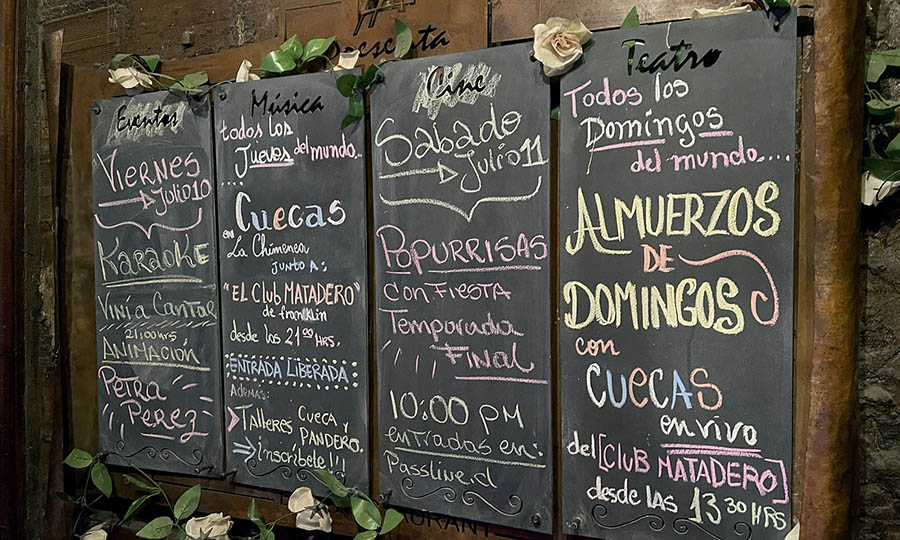 Presenta
Eventos
Viernes
Julio 10
Karaoke
Viní a Cantar
21:00 hrs
ANIMACIÓN
Petra
Perez
Música
todos los
Jueves del mundo...
....
Cuecas
en La Chimenea
JUNTO A:
"EL Club MATADERO"
de franklin
desde las 21:00 HRS.
ENTRADA LIBERADA
ADEMÁS:
Talleres CUECA Y
PANDERO.
¡inscríbete!!!
Cine
Sabado
Julio 11
POPURRISAS
con FIESTA
Temporada
Final
10:00 PM
entradas en:
Passline.cl
Teatro
Todos los
Domingos
del mundo....
ALMUERZOS
DE
DOMINGOS
con
CUECAS
en vivo
del [CLUB MATADERO]
desde las 13:30 HRS
URANT